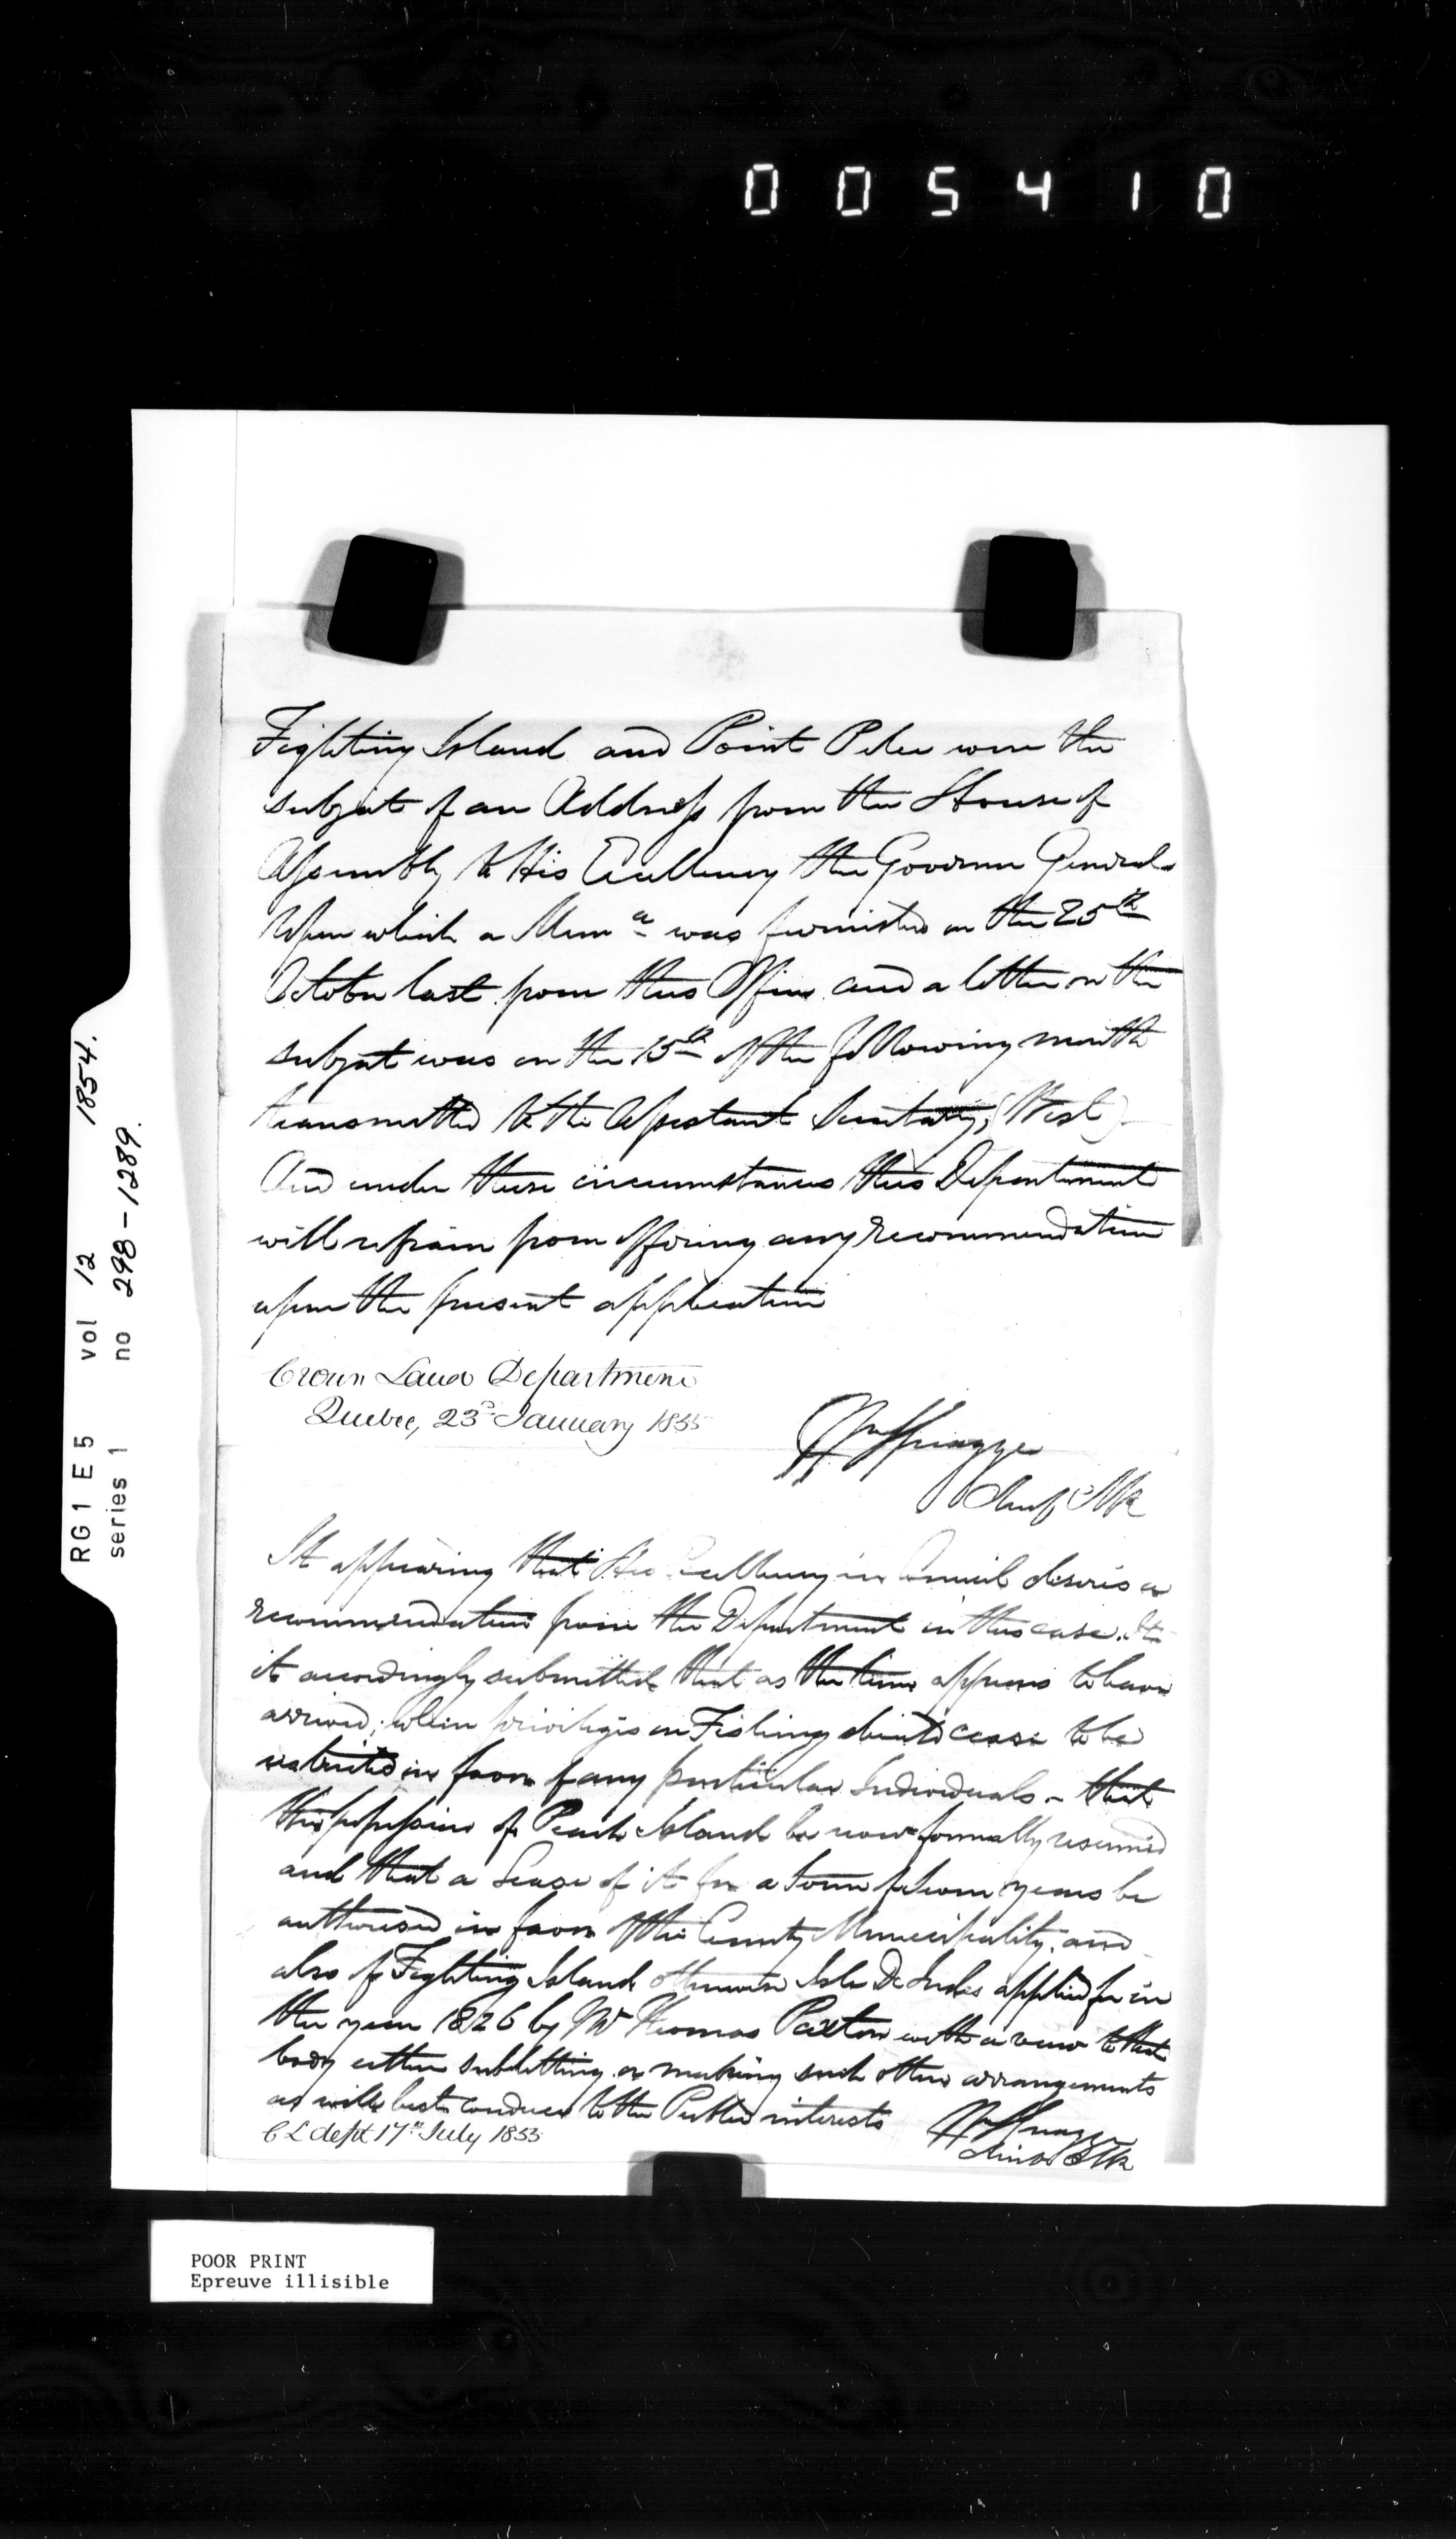 005410
RG1 E5 vol 12 1854.
series 1 no 298-1289.
Fighting Island and Point Pelee were the
subject of an Address from the House of
Assembly to His Excellency the Governor General
Upon which a Mem a was furnished on the 25th
October last from this Office and a letter on the
subject was on the 15th of the following month
transmitted to the Assistant Secretary, (West)
And under these circumstances this Department
will refrain from offering any recommendation
upon the present application
Crown Land Department
Quebec, 23d January 1855
Chief Clk
It appearing that His Excellency in Council desires a
recommendation from the Department in this case. It
is accordingly submitted that as the time appears to have
arrived; when privileges on Fishing should cease to be
restricted in favor of any particular Individuals - that
the possession of Peach Island be now formally resumed
and that a Lease of it for a Term of years be
authorised in favor of the County Municipality, and
also of Fighting Island otherwise Isle applied for in
the year 1826 by Mr Thomas Paxton with a view to that
body either subletting or making such other arrangements
as will best conduce to the Public interests
C L dept 17th July 1855
Chief Clk
POOR PRINT
Epreuve illisible